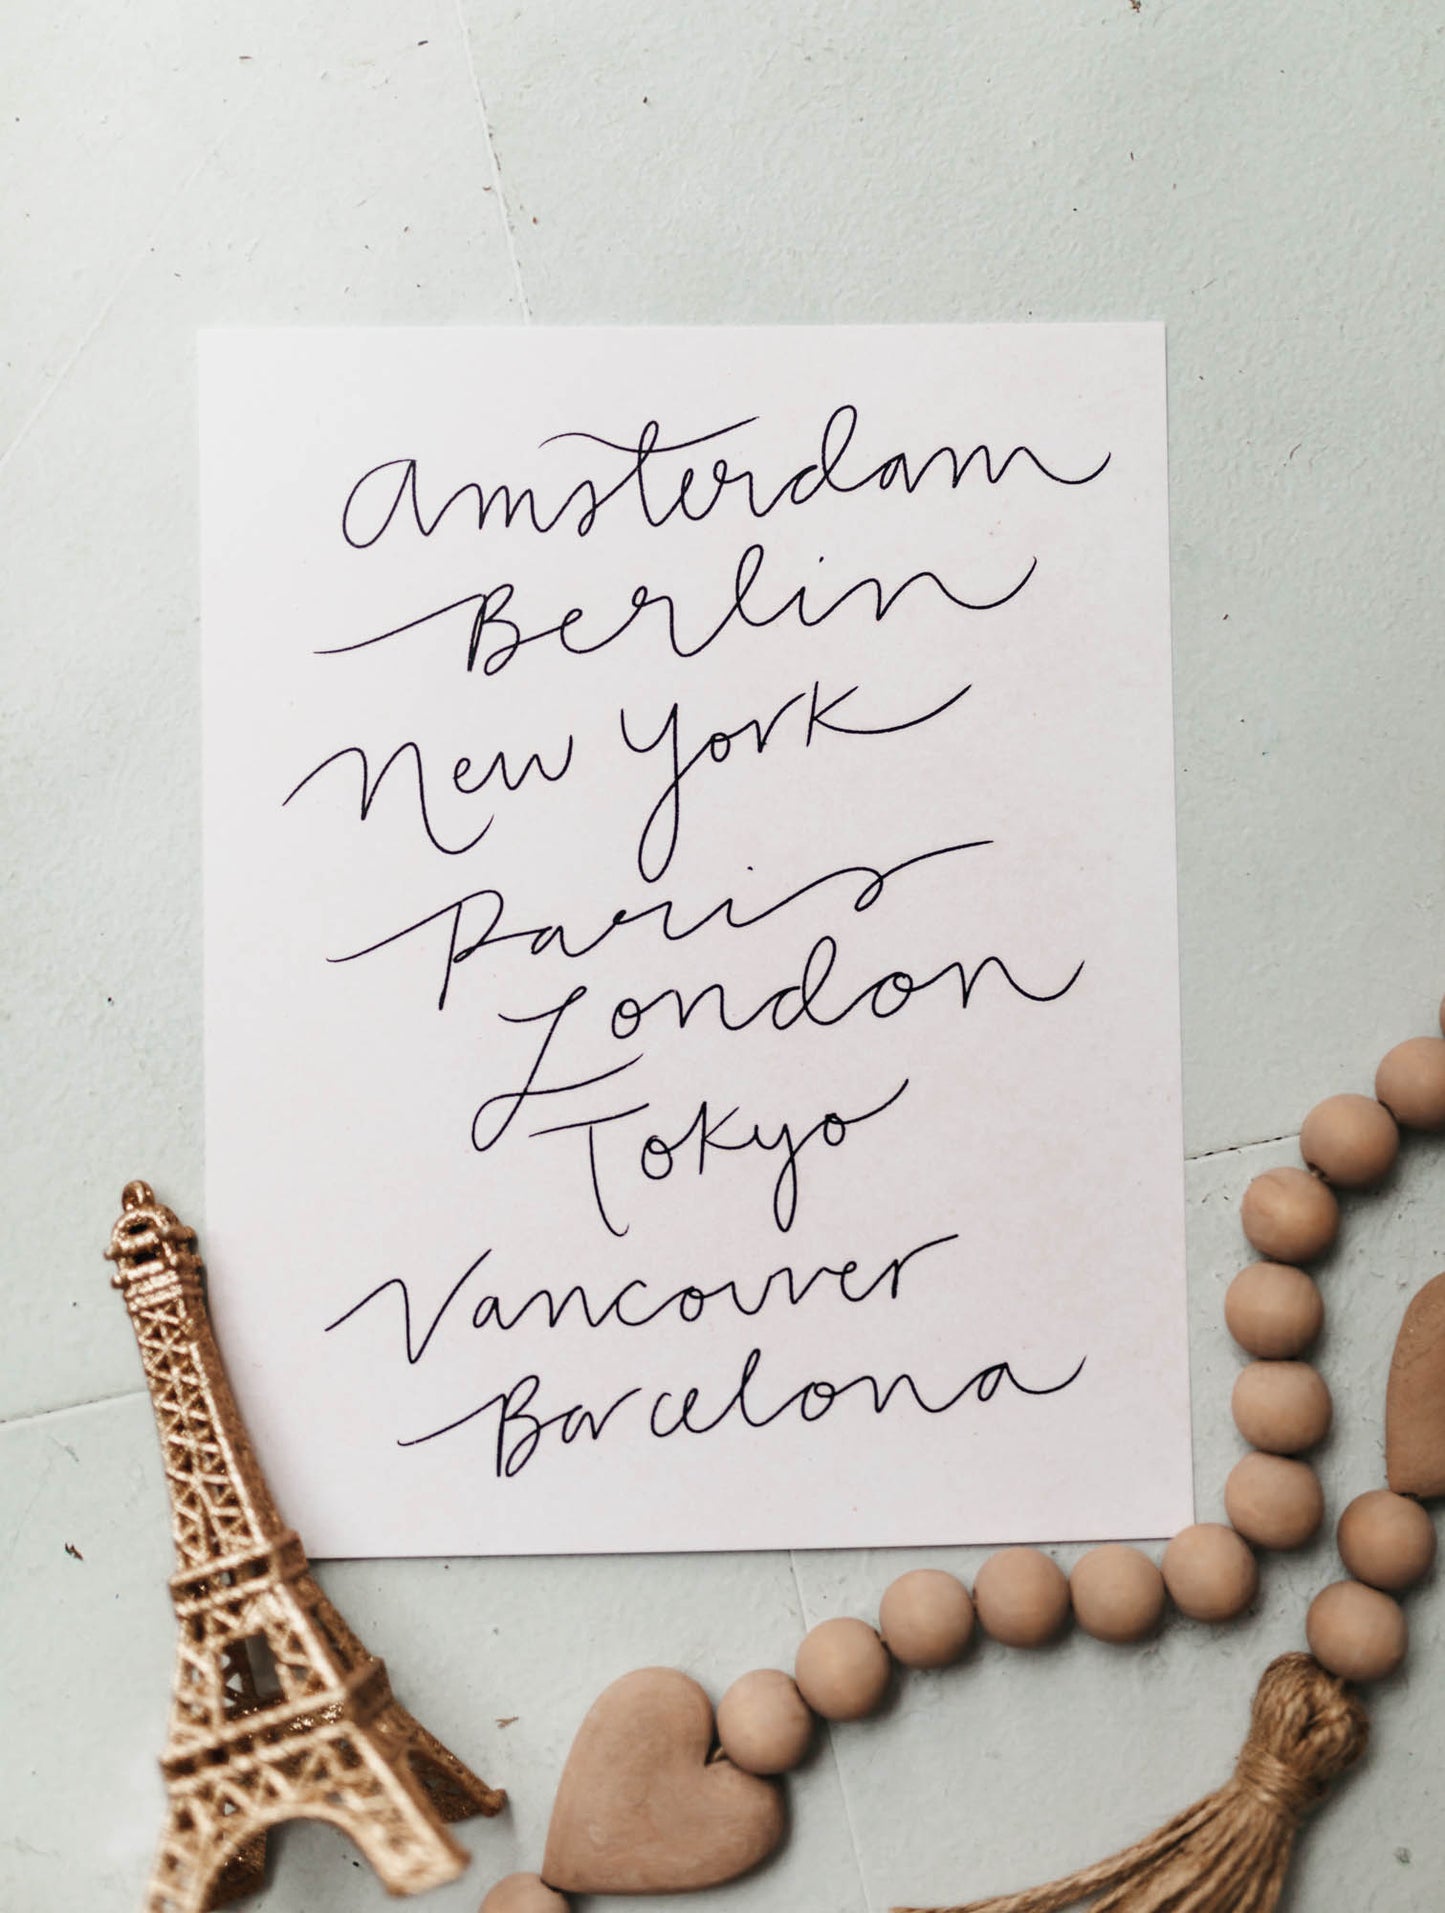 Amsterdam
Berlin
New York
Paris
London
Tokyo
Vancouver
Barcelona